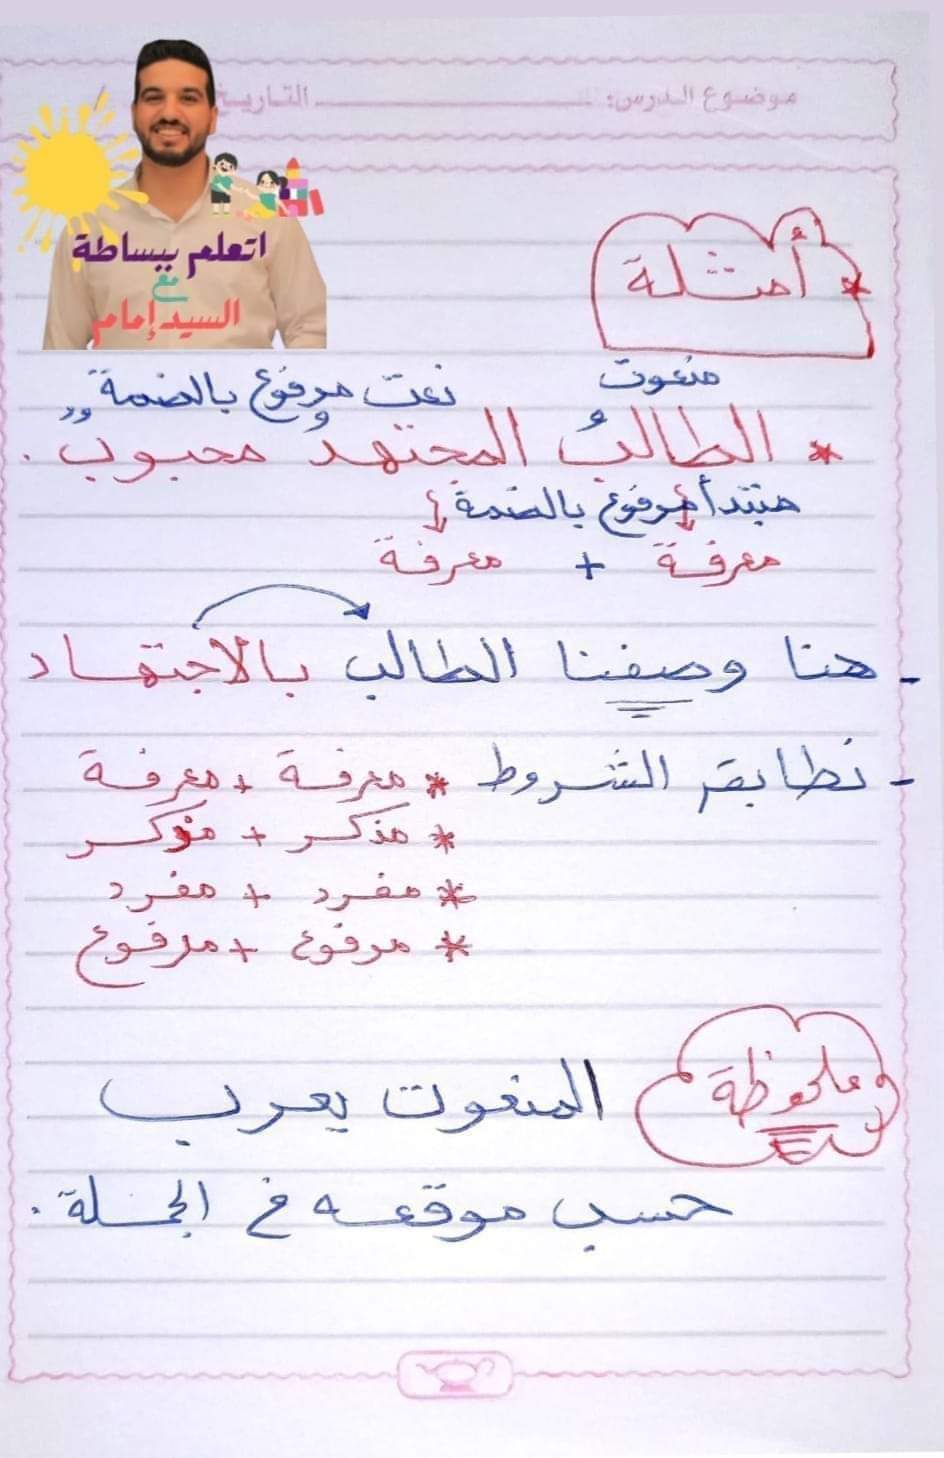 موضوع الدرس: التاريخ
اتعلم ببساطة
مع
السيد إمام
* أمثلة
منعوت نعت مرفوع بالضمة
* الطالبُ المجتهدُ محبوبٌ .
مبتدأ مرفوع بالضمة
معرفة + معرفة
- هنا وصفنا الطالب بالاجتهاد
- نطابق الشروط * معرفة + معرفة
* مذكر + مذكر
* مفرد + مفرد
* مرفوع + مرفوع
ملحوظة المنعوت يعرب
حسب موقعه في الجملة .